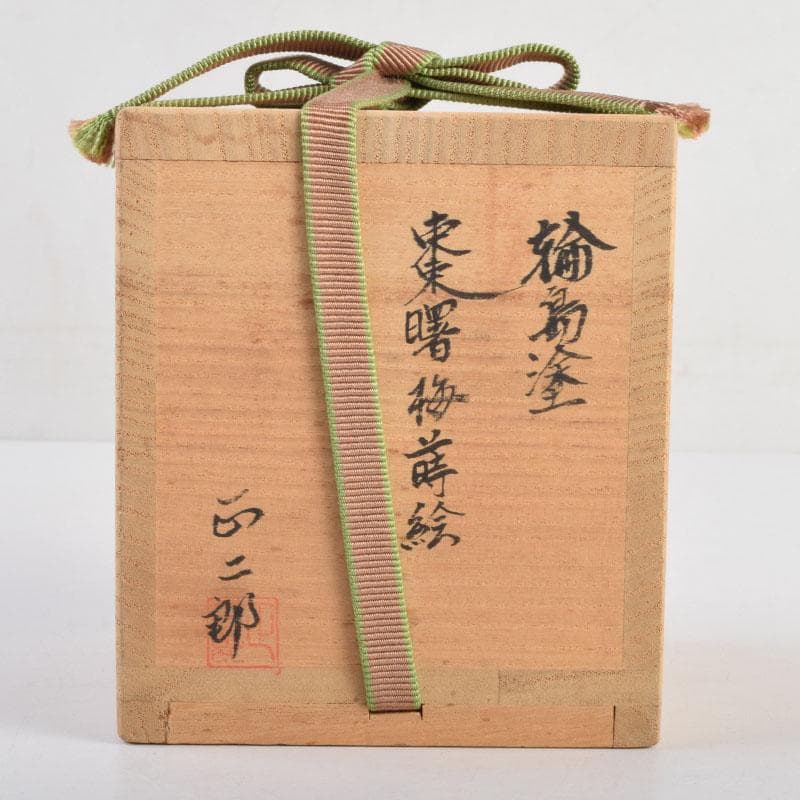 輪島塗
棗曙梅蒔絵
正二郎